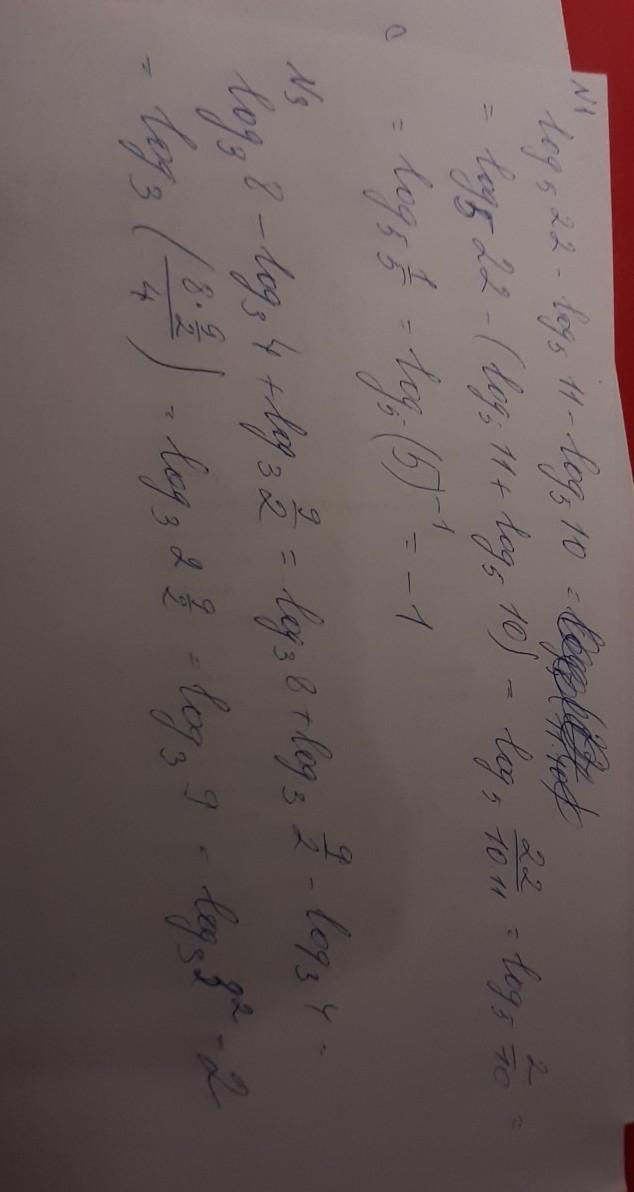 N1
log₅ 22 - log₅ 11 - log₅ 10 =
= log₅ 22 - (log₅ 11 + log₅ 10) = log₅ 22/10·11 = log₅ 2/10 =
= log₅ 1/5 = log₅ (5)⁻¹ = -1
N3
log₃ 8 - log₃ 4 + log₃ 9/2 = log₃ 8 + log₃ 9/2 - log₃ 4 =
= log₃ (8·9/2 / 4) = log₃ 2 9/2 = log₃ 9 = log₃ 3² = 2